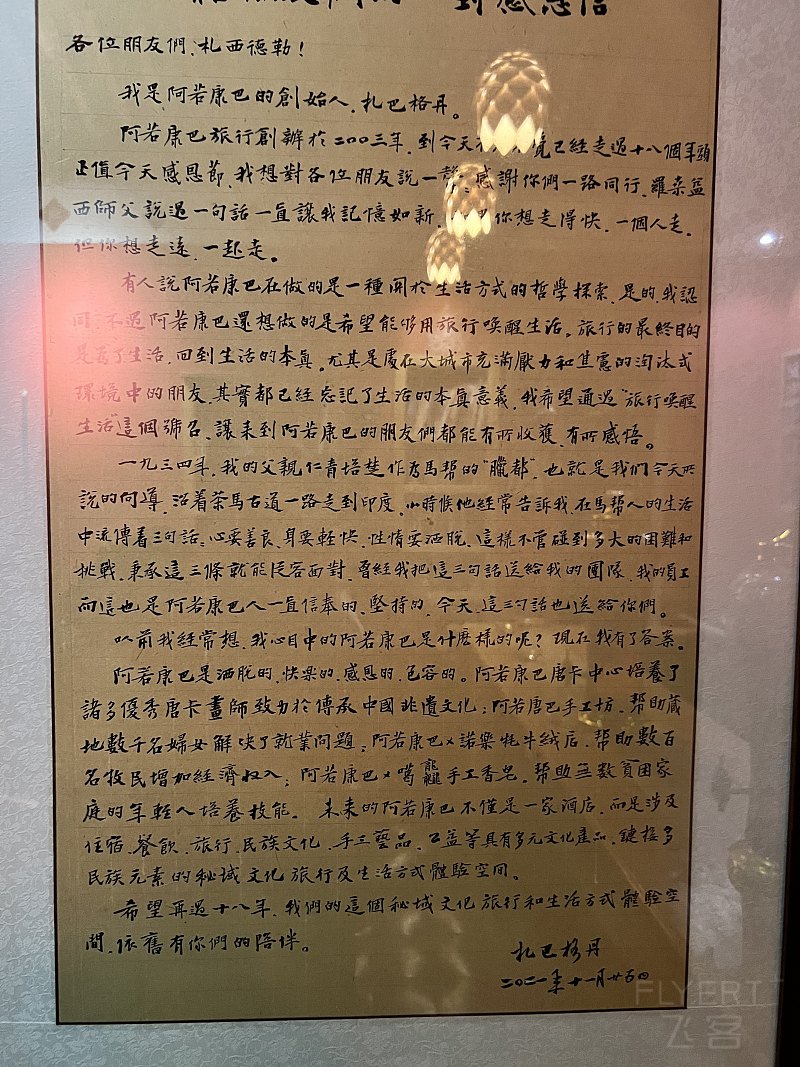 一封感恩信
各位朋友們、札西德勒！
我是阿若康巴的創始人、扎巴格丹。
阿若康巴旅行創辦於二〇〇三年、到今天 已經走過十八個年頭
正值今天感恩節、我想對各位朋友說一聲：感謝你們一路同行、羅桑益
西師父說過一句話一直讓我記憶如新、 你想走得快、一個人走。
但你想走遠、一起走。
有人說阿若康巴在做的是一種關於生活方式的哲學探索、是的、我認
同；不過阿若康巴還想做的是希望能够用旅行喚醒生活。旅行的最終目的
是爲了生活、回到生活的本真。尤其是處在大城市充滿壓力和焦慮的淘汰式
環境中的朋友、其實都已經忘記了生活的本真意義、我希望通過“旅行喚醒
生活”這個號召、讓來到阿若康巴的朋友們都能有所收獲、有所感悟。
一九三四年、我的父親仁青培楚作爲馬幫的“臘都”、也就是我們今天所
說的向導、沿着茶馬古道一路走到印度、小時候他經常告訴我、在馬幫人的生活
中流傳着三句話：心要善良、身要輕快、性情要洒脫、這樣不管碰到多大的困難和
挑戰、秉承這三條就能從容面對、曾經我把這三句話送給我的團隊、我的員工
而這也是阿若康巴人一直信奉的、堅持的、今天、這三句話也送給你們。
以前我經常想、我心目中的阿若康巴是什麽樣的呢？現在我有了答案。
阿若康巴是洒脫的、快樂的、感恩的、包容的。阿若康巴唐卡中心培養了
諸多優秀唐卡畫師致力於傳承中國非遺文化；阿若唐巴手工坊、幫助藏
地數千名婦女解決了就業問題；阿若康巴×諾樂牦牛絨店、幫助數百
名牧民增加經濟收入；阿若康巴×噶龍手工香皂、幫助無數貧困家
庭的年輕人培養技能。未來的阿若康巴不僅是一家酒店、而是涉及
住宿、餐飲、旅行、民族文化、手工藝品、公益等具有多元文化產品、鏈接多
民族元素的秘域文化旅行及生活方式體驗空間。
希望再過十八年、我們的這個秘域文化旅行和生活方式體驗空
間、依舊有你們的陪伴。
扎巴格丹
二〇二一年十一月廿五日
FLYERT
飞客